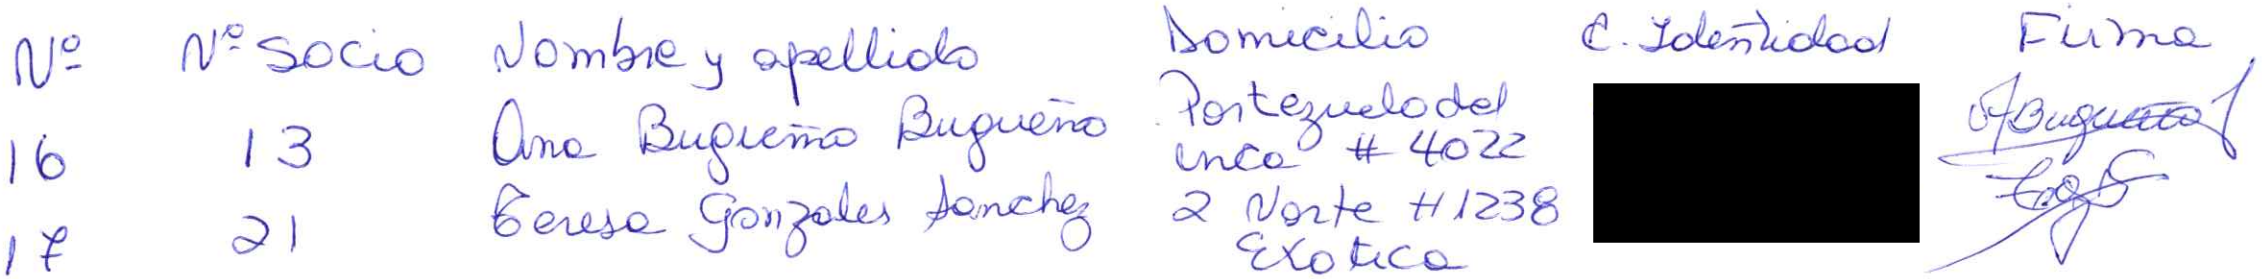 Nº Nº Socio Nombre y apellido Domicilio C. Identidad Firma
16 13 Ana Bugueño Bugueño Portezuelo del
inca # 4022 ABugueño
17 21 Teresa Gonzales Sanchez 2 Norte # 1238
Exotica